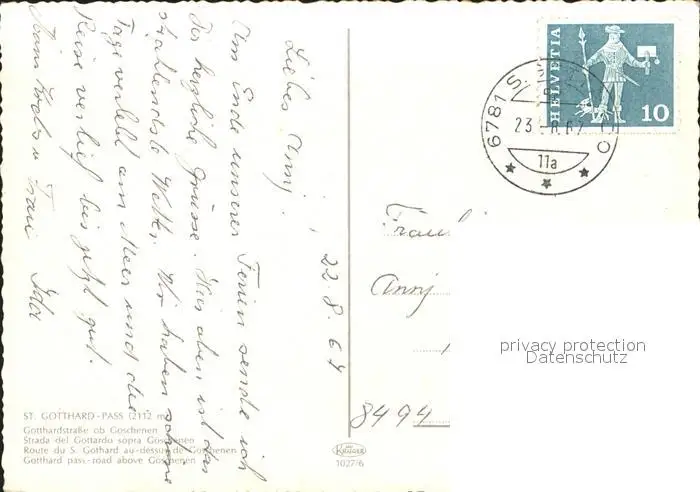 22. 8. 67
Liebes Annj!
Am Ende unserer Ferien sende ich
Dir herzliche Grüsse. Hier oben ist das
strahlendste Wetter. Wir haben schöne
Tage verlebt am Meer und die
Reise verlief bis jetzt gut.
Frau Ida
HELVETIA
10
6781 S.
23
67
11a
Frau
Annj
8494
privacy protection
Datenschutz
ST. GOTTHARD-PASS (2112 m)
Gotthardstraße ob Göschenen
Strada del Gottardo sopra Göschenen
Route du S. Gothard au-dessus de Göschenen
Gotthard pass-road above Göschenen
KRÜGER
1027/6